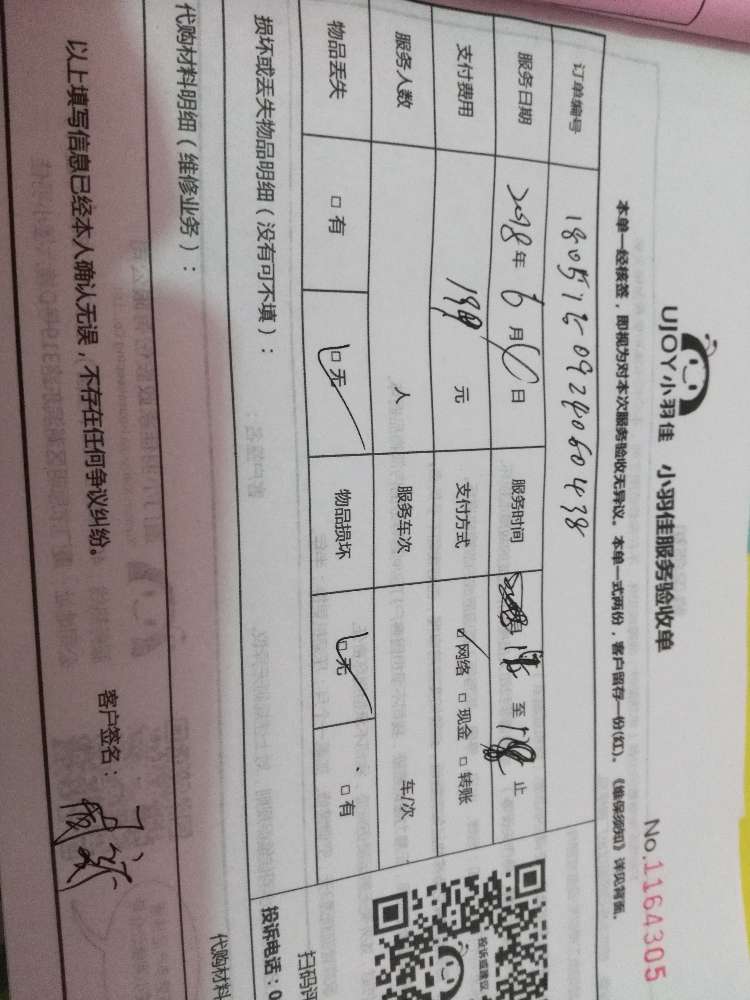 UJOY小羽佳 小羽佳服务验收单
No.1164305
本单一经核签，即视为对本次服务验收无异议。本单一式两份，客户留存一份(红)。《维保须知》详见背面。
订单编号 1805150924050438
服务日期 2018年6月 日 服务时间 至 止
支付费用 199 元 支付方式 ☑网络 □现金 □转账
服务人数 人 服务车次 车/次
物品丢失 □有 ☑无 物品损坏 ☑无 □有
损坏或丢失物品明细（没有可不填）：
投诉或建议
扫码评
投诉电话：0
代购材料明细（维修业务）：
代购材料
以上填写信息已经本人确认无误，不存在任何争议纠纷。 客户签名：